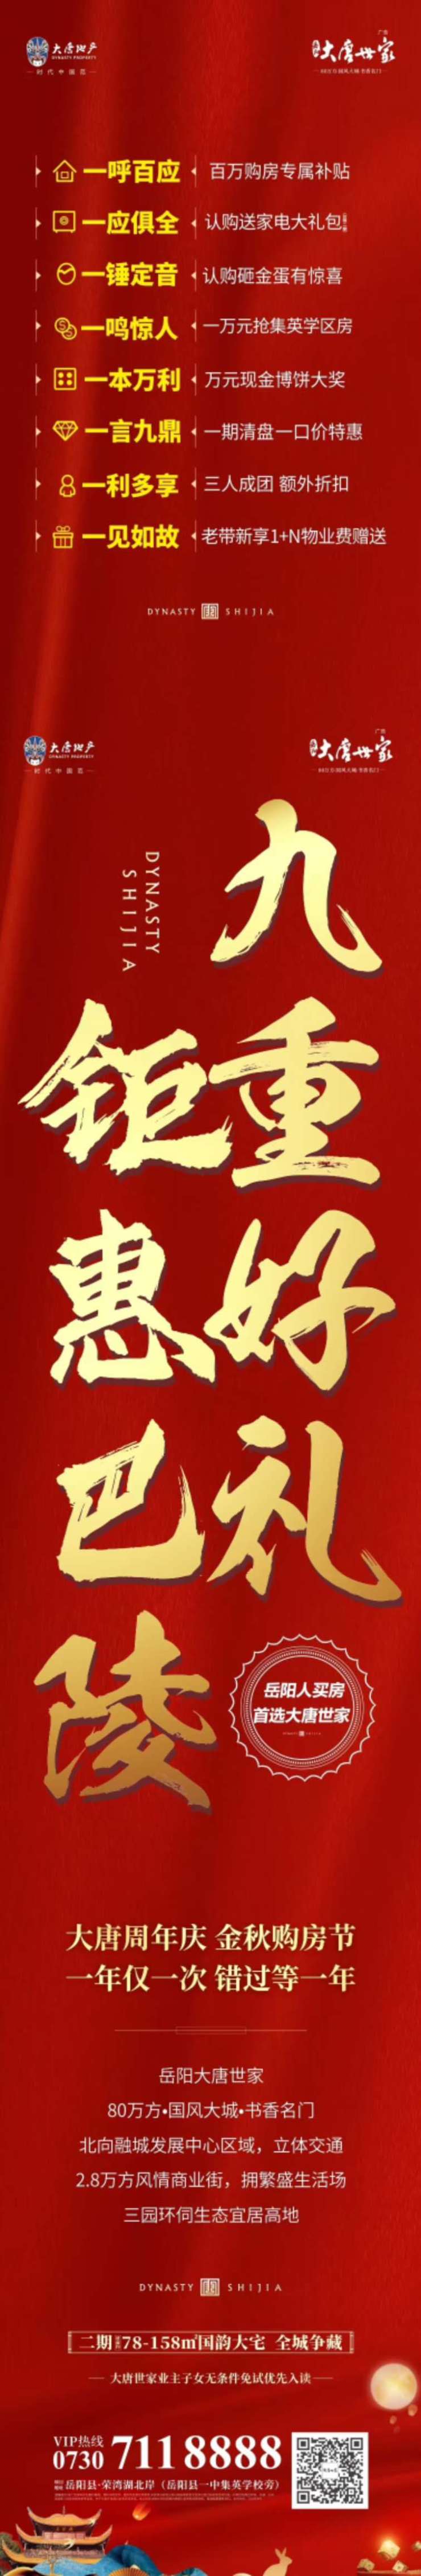 大唐地产
DYNASTY PROPERTY
时代中国范
大唐世家
一呼百应 百万购房专属补贴
一应俱全 认购送家电大礼包
一锤定音 认购砸金蛋有惊喜
一鸣惊人 一万元抢集英学区房
一本万利 万元现金博饼大奖
一言九鼎 一期清盘一口价特惠
一利多享 三人成团 额外折扣
一见如故 老带新享1+N物业费赠送
DYNASTY SHIJIA
大唐地产
DYNASTY PROPERTY
时代中国范
大唐世家
DYNASTY
SHIJIA
九重好礼
钜惠巴陵
岳阳人买房
首选大唐世家
大唐周年庆 金秋购房节
一年仅一次 错过等一年
岳阳大唐世家
80万方•国风大城•书香名门
北向融城发展中心区域，立体交通
2.8万方风情商业街，拥繁盛生活场
三园环伺生态宜居高地
DYNASTY SHIJIA
二期 78-158㎡国韵大宅 全城争藏
大唐世家业主子女无条件免试优先入读
VIP热线
0730 711 8888
岳阳县·荣湾湖北岸（岳阳县一中集英学校旁）